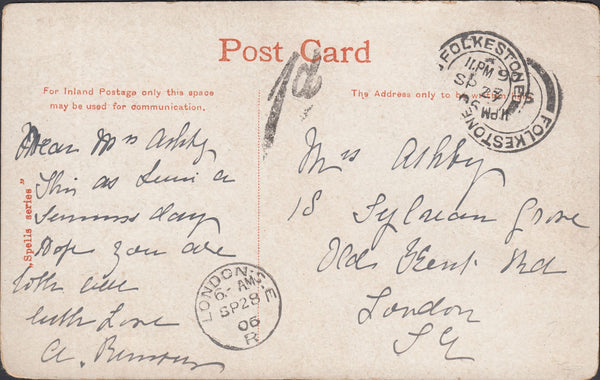 Post Card
For Inland Postage only this space
may be used for communication.
The Address only to be
"Spells series"
1d
FOLKESTONE
11.PM
SP 27
06
FOLKESTONE
11.PM
Dear Mrs Ashby
This as been a
day
Hope you are
both well
with Love
A.
LONDON. S.E
6 - AM
SP 28
06
R
Mrs Ashby
18 Sylvan Grove
Olds Kent Rd
London
SE